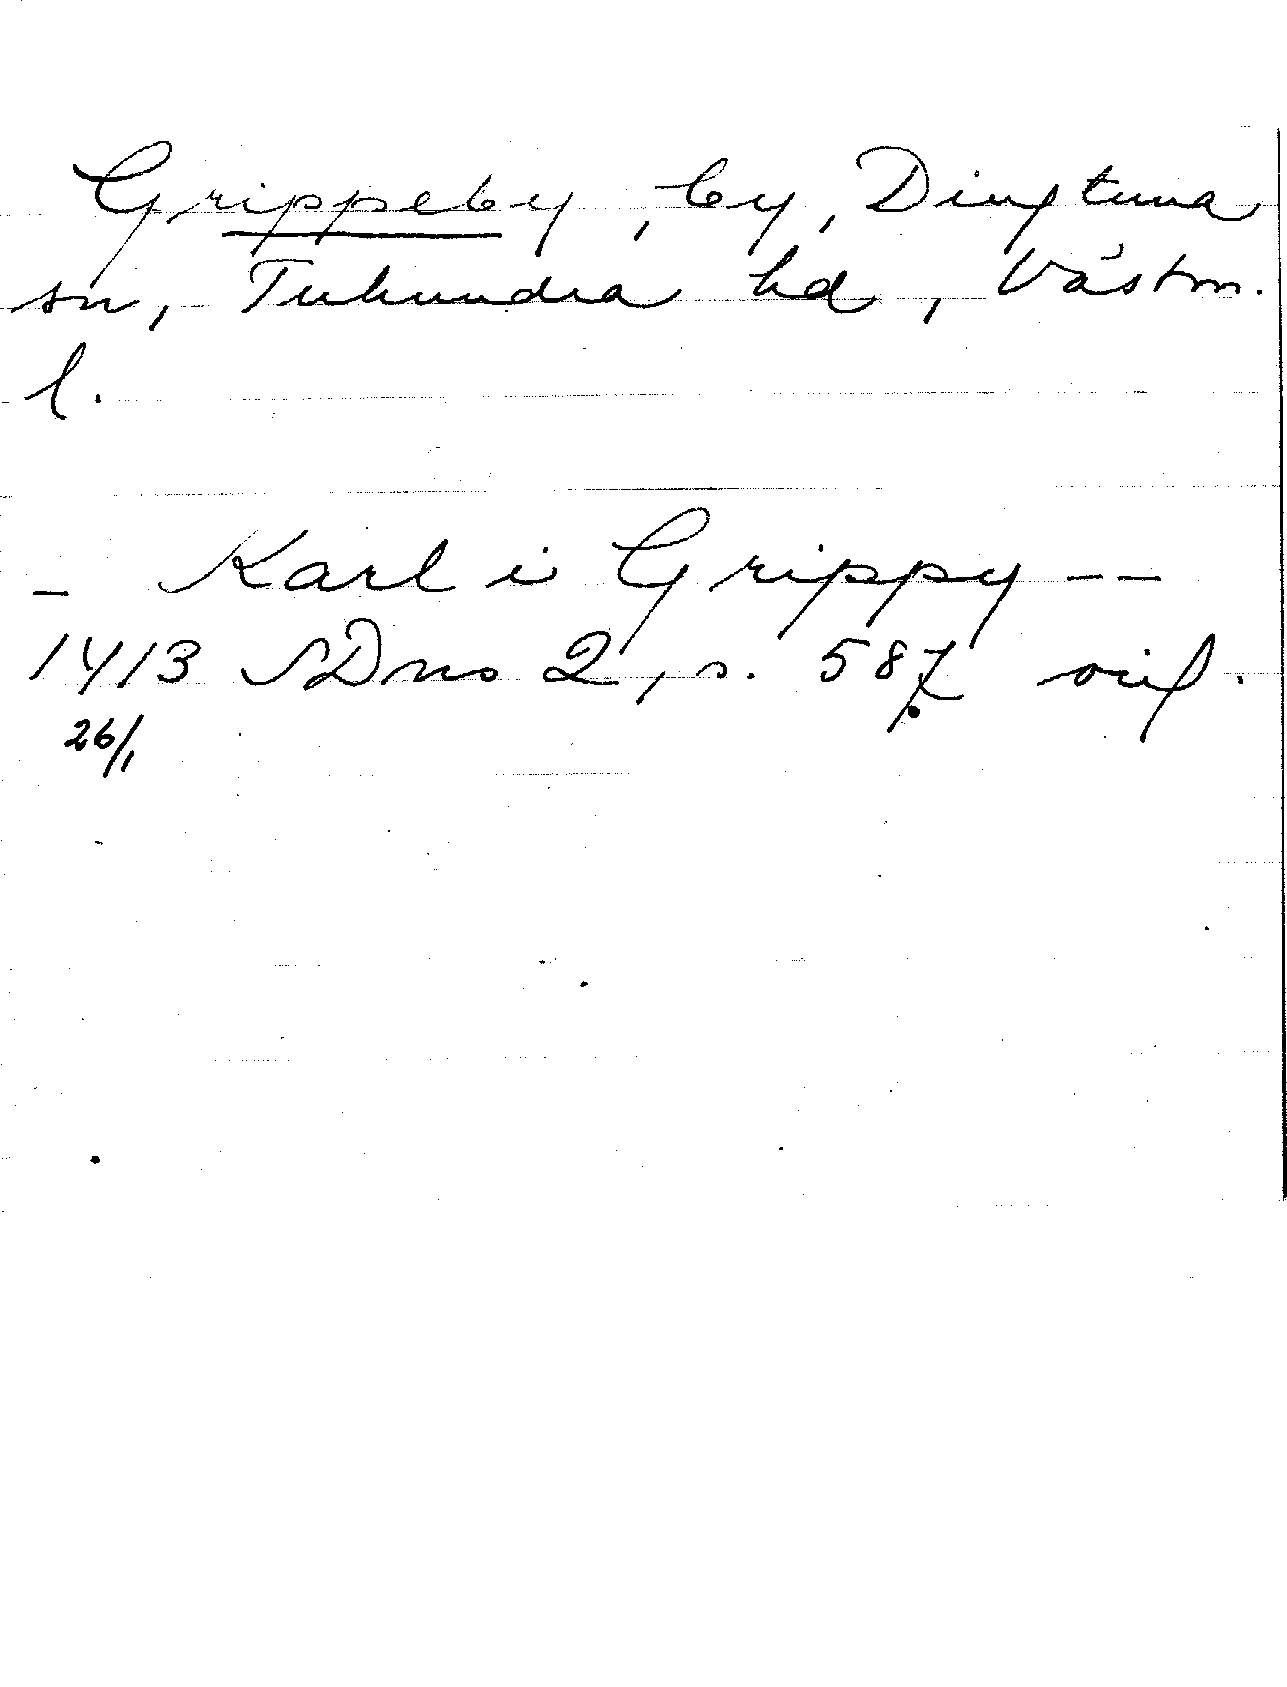 Grippeby, by, Dingtuna
sn, Tuhundra hd, Västm.
l.
- Karl i Grippy --
1413 SDns 2, s. 587 orig.
26/1